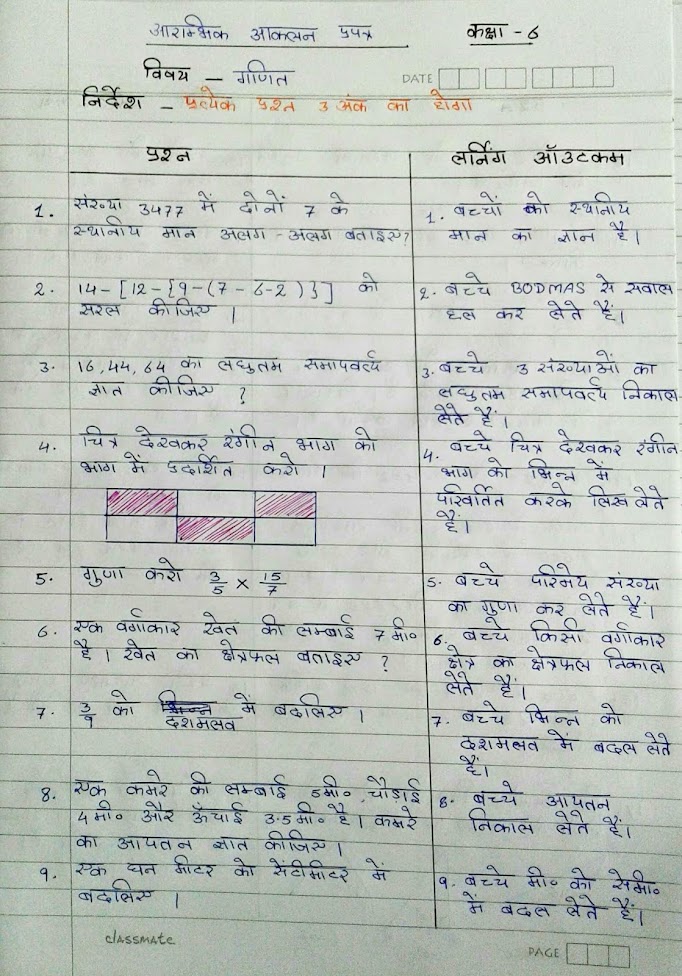 आरम्भिक आकलन प्रपत्र कक्षा - 6
विषय - गणित
DATE
निर्देश - प्रत्येक प्रश्न 3 अंक का होगा
प्रश्न
1. संख्या 3477 में दोनों 7 के
स्थानीय मान अलग - अलग बताइए?
2. 14-[12-{9-(7-6-2)}] को
सरल कीजिए ।
3. 16,44,64 का लघुतम समापवर्त्य
ज्ञात कीजिए ?
4. चित्र देखकर रंगीन भाग को
भाग में प्रदर्शित करो ।
5. गुणा करो 3/5 × 15/7
6. एक वर्गाकार खेत की लम्बाई 7 मी०
है । खेत का क्षेत्रफल बताइए ?
7. 3/9 को भिन्न में बदलिए ।
दशमलव
8. एक कमरे की लम्बाई 5मी०, चौड़ाई
4मी० और ऊँचाई 3.5मी० है। कमरे
का आयतन ज्ञात कीजिए ।
9. एक घन मीटर को सेंटीमीटर में
बदलिए ।
लर्निंग ऑउटकम
1. बच्चों को स्थानीय
मान का ज्ञान है।
2. बच्चे BODMAS से सवाल
हल कर लेते हैं।
3. बच्चे 3 संख्याओं का
लघुतम समापवर्त्य निकाल
लेते हैं।
4. बच्चे चित्र देखकर रंगीन
भाग को भिन्न में
परिवर्तित करके लिख लेते
हैं।
5. बच्चे परिमेय संख्या
का गुणा कर लेते हैं।
6. बच्चे किसी वर्गाकार
क्षेत्र का क्षेत्रफल निकाल
लेते हैं।
7. बच्चे भिन्न को
दशमलव में बदल लेते
हैं।
8. बच्चे आयतन
निकाल लेते हैं।
9. बच्चे मी० को सेमी०
में बदल लेते हैं।
classmate
PAGE